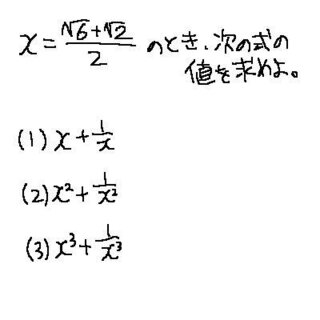 x = (√6+√2)/2 のとき、次の式の
値を求めよ。
(1) x + 1/x
(2) x² + 1/x²
(3) x³ + 1/x³